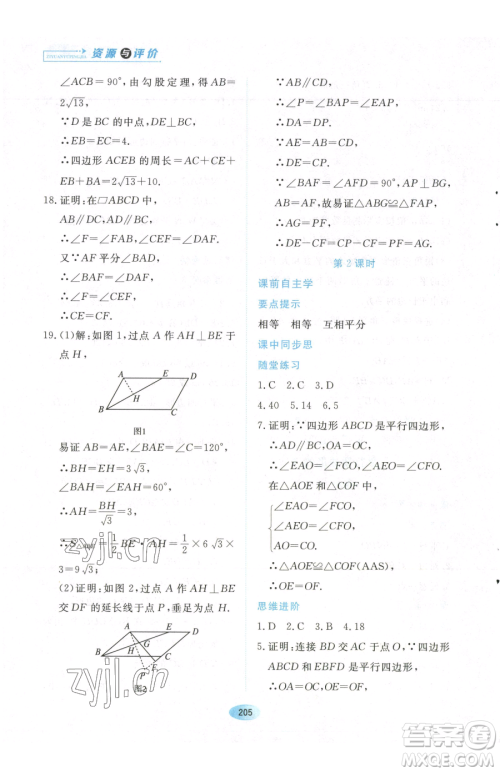 资源与评价
∠ACB=90°,由勾股定理,得AB=
2√13.
∵D是BC的中点,DE⊥BC,
∴EB=EC=4.
∴四边形ACEB的周长=AC+CE+
EB+BA=2√13+10.
18.证明:在□ABCD中,
AB//DF,AD//BC,
∴∠F=∠FAB,∠CEF=∠DAF.
又∵AF平分∠BAD,
∴∠FAB=∠DAF.
∴∠F=∠CEF,
∴CE=CF.
19.(1)解:如图1,过点A作AH⊥BE于
点H,
A E D
H
B C
图1
易证AB=AE,∠BAE=∠C=120°,
∴BH=EH=3√3,
∠BAH=∠EAH=60°.
∴AH=BH/√3=3.
=1/2BE·AH=1/2×6√3×
3=9√3;
(2)证明:如图2,过点A作AH⊥BE
交DG的延长线于点P,垂足为点H.
A E D
H G
B C
P
图2
∵AB//CD,∴AP⊥PD.
∴∠P=∠APF=∠AHB=90°.
∵AE=AB=CD,
∴∠ABH=∠AEB.
∵∠BAF=∠AFD=90°,AP⊥BE,
故易证△ABH≌△GAF,
∴AG=PF,
∴DE-CP=CF-CP=PF=AG.
第2课时
课前自主学
要点提示
相等 相等 互相平分
课中同步思
随堂练习
1.C 2.C 3.D
4.40 5.14 6.5
7.证明:∵四边形ABCD是平行四边形,
∴AD//BC,OA=OC.
∴∠EAO=∠FCO,∠AEO=∠CFO.
在△AOE和△COF中,
∠EAO=∠FCO,
∠AEO=∠CFO,
AO=CO.
∴△AOE≌△COF(AAS),
∴OE=OF.
思维进阶
1.D 2.C 3.B 4.18
5.证明:连接BD交AC于点O,∵四边形
ABCD和EBFD是平行四边形,
∴OA=OC,OE=OF.
205
zyjl.cn
zyjl.cn
答案圈
MXQE.COM